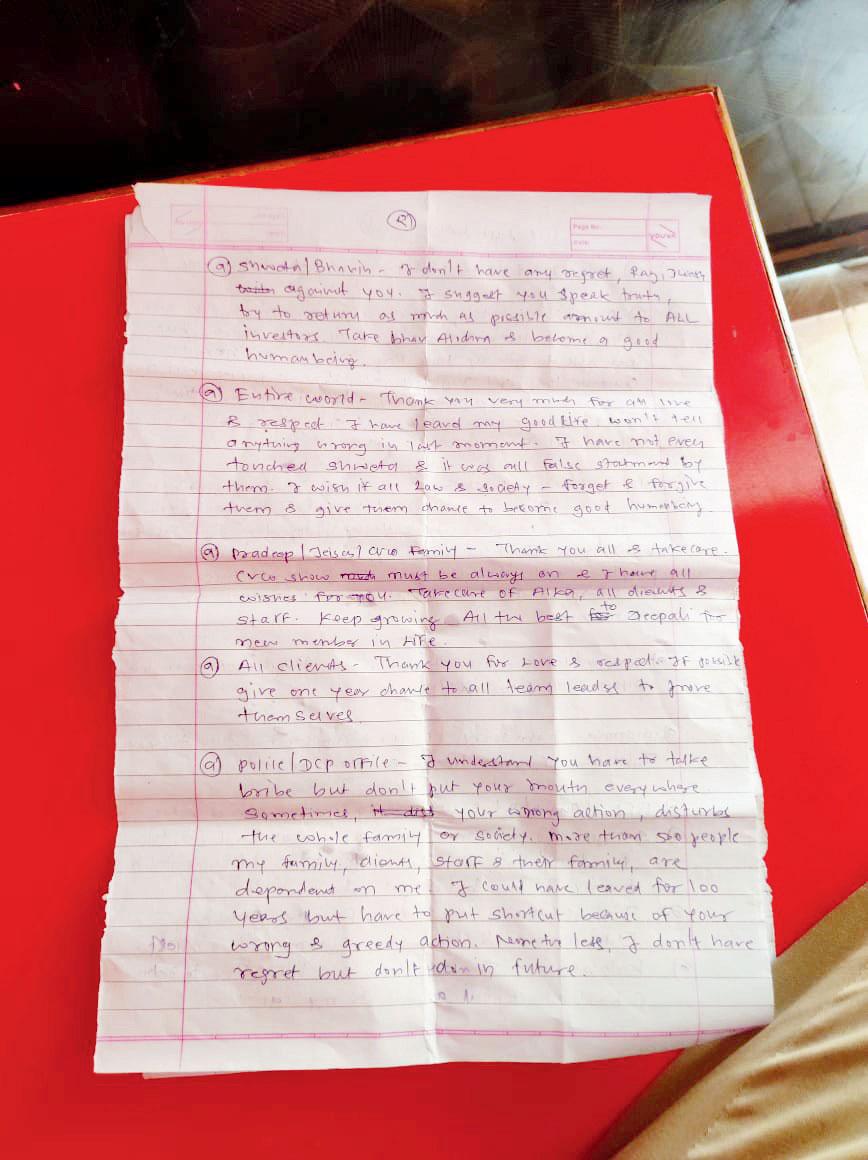 २
Page No.:
Date:
youva
@ Shweta/Bhavin - I don't have any regret,
against you. I suggest you speak truth,
try to return as much as possible amount to ALL
investors Take bhav Alochna & become a good
humanbeing.
@ Entire world - Thank you very much for all love
& respect. I have leaved my good life, won't tell
anything wrong in last moment. I have not even
touched shweta & it was all false statment by
them. I wish if all Law & Society - forget & forgive
them & give them chance to become good humanbeing
@ Pradeep / / CVCO Family - Thank you all & takecare.
CVCO show must be always on & I have all
wishes for you. Takecare of Alka, all clients &
staff. Keep growing. All the best to Deepali for
new member in Life.
@ All clients - Thank you for Love & respect. If possible
give one year chance to all team leads to prove
themselves.
@ Police/DCP office - I understand you have to take
bribe but don't put your mouth everywhere
Sometimes, your wrong action, disturbs
the whole family or society. More than 500 people
my family, clients, staff & their family, are
dependent on me. I could have leaved for 100
years but have to put shortcut because of your
wrong & greedy action. None the less, I don't have
regret but don't in future.